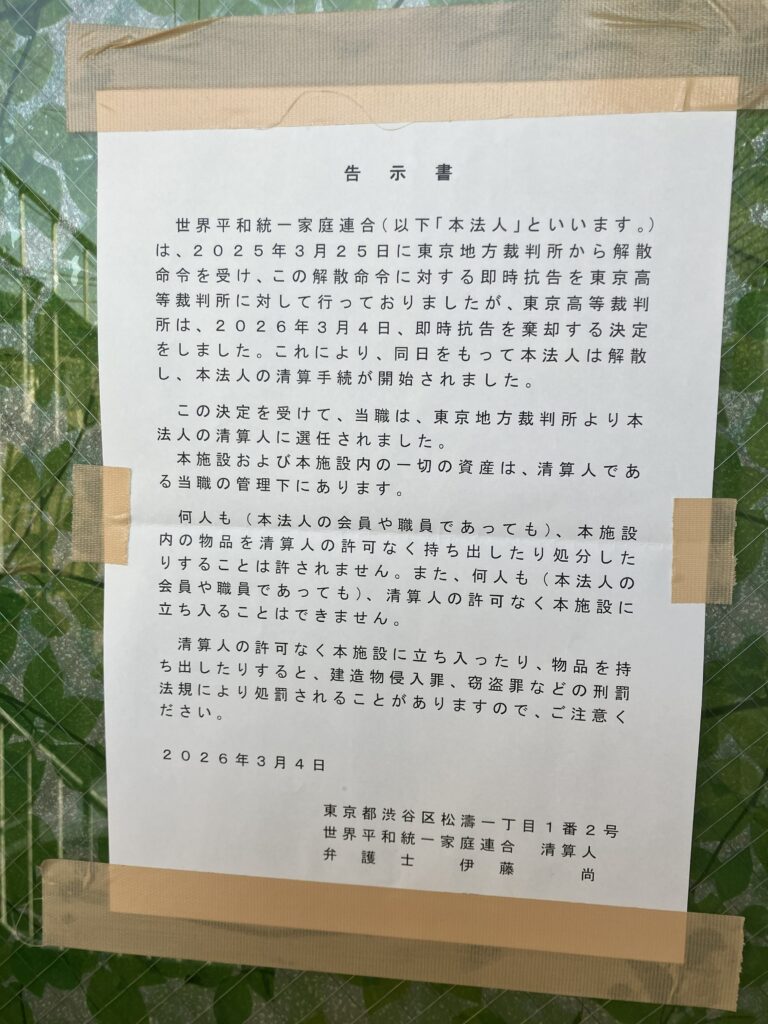 告 示 書
世界平和統一家庭連合(以下「本法人」といいます。)
は、2025年3月25日に東京地方裁判所から解散
命令を受け、この解散命令に対する即時抗告を東京高
等裁判所に対して行っておりましたが、東京高等裁判
所は、2026年3月4日、即時抗告を棄却する決定
をしました。これにより、同日をもって本法人は解散
し、本法人の清算手続が開始されました。
この決定を受けて、当職は、東京地方裁判所より本
法人の清算人に選任されました。
本施設および本施設内の一切の資産は、清算人であ
る当職の管理下にあります。
何人も(本法人の会員や職員であっても)、本施設
内の物品を清算人の許可なく持ち出したり処分した
りすることは許されません。また、何人も(本法人の
会員や職員であっても)、清算人の許可なく本施設に
立ち入ることはできません。
清算人の許可なく本施設に立ち入ったり、物品を持
ち出したりすると、建造物侵入罪、窃盗罪などの刑罰
法規により処罰されることがありますので、ご注意く
ださい。
2026年3月4日
東京都渋谷区松濤一丁目1番2号
世界平和統一家庭連合 清算人
弁 護 士 伊 藤 尚